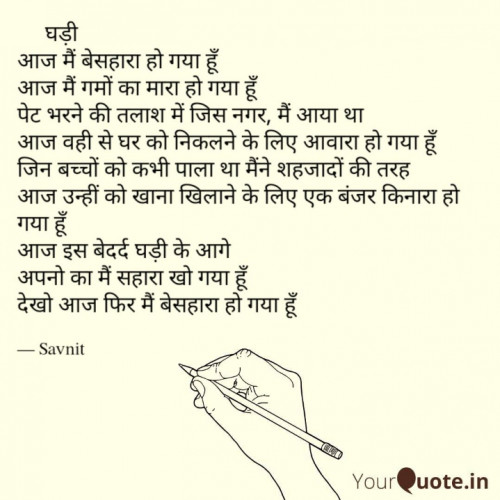 घड़ी
आज मैं बेसहारा हो गया हूँ
आज मैं गमों का मारा हो गया हूँ
पेट भरने की तलाश में जिस नगर, मैं आया था
आज वही से घर को निकलने के लिए आवारा हो गया हूँ
जिन बच्चों को कभी पाला था मैंने शहजादों की तरह
आज उन्हीं को खाना खिलाने के लिए एक बंजर किनारा हो
गया हूँ
आज इस बेदर्द घड़ी के आगे
अपनो का मैं सहारा खो गया हूँ
देखो आज फिर मैं बेसहारा हो गया हूँ
— Savnit
YourQuote.in